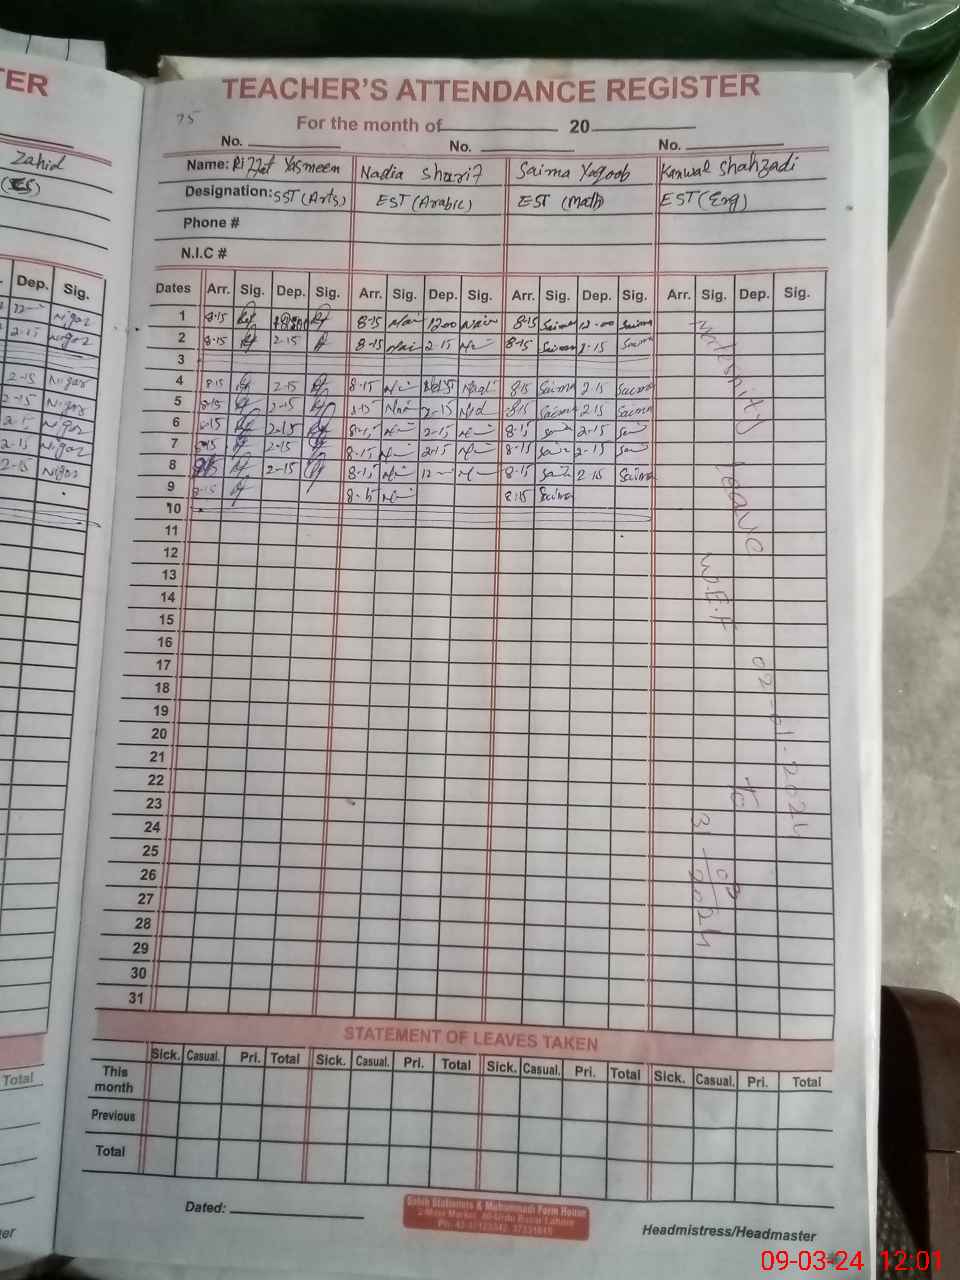 TER
Zahid
Dep. Sig.
12 Nigar
2-15 Nigar
2-15 Nigar
2-15 Nigar
2-15 Nigar
2-15 Nigar
2-15 Nigar
Total
TEACHER'S ATTENDANCE REGISTER
For the month of 20
No. No. No.
Name: Riffat Yasmeen Nadia Sharif Saima Yaqoob Kanwal Shahzadi
Designation: SST (Arts) EST (Arabic) EST (Math) EST (Eng)
Phone #
N.I.C #
Dates Arr. Sig. Dep. Sig. Arr. Sig. Dep. Sig. Arr. Sig. Dep. Sig. Arr. Sig. Dep. Sig.
1 8-15 8-15 12-00 8-15 Saima 12-00 Saima
2 8-15 2-15 8-15 2-15 8-15 Saima 2-15 Saima
3
4 8-15 2-15 8-15 8-15 Saima 2-15 Saima
5 8-15 2-15 8-15 2-15 8-15 Saima 2-15 Saima
6 8-15 2-15 8-15 2-15 8-15 2-15
7 8-15 2-15 8-15 2-15 8-15 2-15
8 8-15 2-15 8-15 12 8-15 2-15 Saima
9 8-15 8-15 8-15 Saima
10
11
12
13
14
15
16
17
18
19
20
21
22
23
24
25
26
27
28
29
30
31
Leave W.E.F 02-01-2024 to 31 03 2024
STATEMENT OF LEAVES TAKEN
Sick. Casual. Pri. Total Sick. Casual. Pri. Total Sick. Casual. Pri. Total Sick. Casual. Pri. Total
This month
Previous
Total
Dated:
Headmistress/Headmaster
09-03-24 12:01